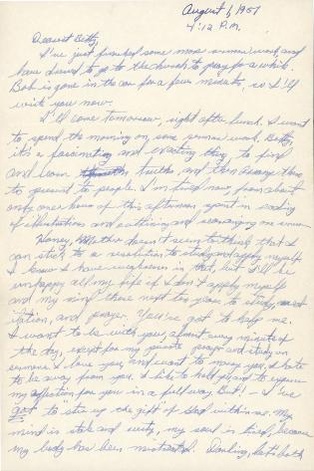 August 1, 1951
4:12 P.M.
Dearest Betty,
I've just finished some more sermon work and
have desired to go to the church to pray for a while.
Bob is gone in the car for a few minutes, so I'll
write you now.
I'll come tomorrow, right after lunch. I want
to spend the morning on some sermon work. Betty,
it's a fascinating and exciting thing to find
and learn truths, and then arrange them
to present to people. I'm tired now, from about
only one hour of this afternoon spent in reading
of illustrations and outlining and rearranging one sermon
Honey, Mother doesn't seem to think that I
can stick to a resolution to study and apply myself
I know I have weakness in that, but I'll be
unhappy all my life if I don't apply myself
and my mind these next ten years to study,
and prayer. You've got to help me.
I want to be with you, almost every minute of
the day, except for my private prayer and study on
sermons. I love you, and want to marry you, I hate
to be away from you. I like to hold you and to express
my affection for you in a full way. But! - I've
got "to stir up the gift" of God within me. My
mind is stale and rusty, my soul is tired, because
my body has been mistreated. Darling, let's both